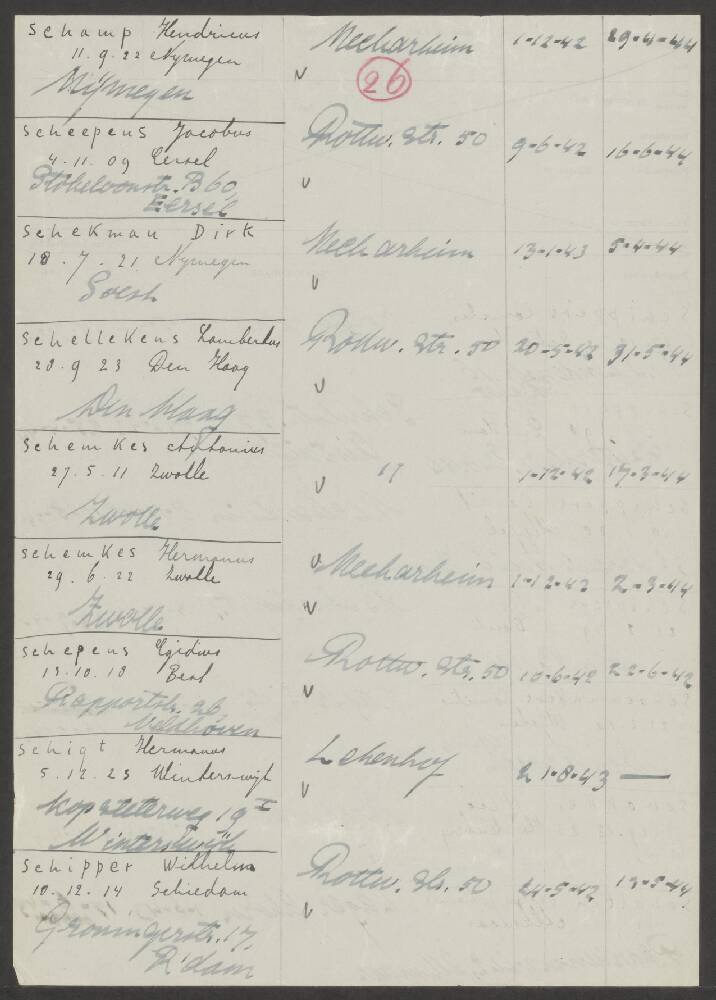 Schamp Hendricus Mecharheim 1-12-42 29-4-44
11.9.22 Nymegen
26
Nijmegen
Scheepens Jacobus Rottw. Str. 50 9-6-42 16-6-44
4.11.09 Eersel
B 60,
Eersel
Schekman Dirk Mecharheim 13-1-43 5-4-44
18.7.21 Nymegen
Soest
Schellekens Lambertus Rottw. Str. 50 20-5-42 31-5-44
20.9 23 Den Haag
Den Haag
Schemkes Antonius 17 1-12-42 17-3-44
27.5.11 Zwolle
Zwolle
Schemkes Hermanus Mecharheim 1-12-42 2-3-44
29.6.22 Zwolle
Zwolle
Schepens Egidius Rottw. Str. 50 10-6-42 22-6-42
13.10.18 Best
Rapportstr. 26
Veldhoven
Schigt Hermanus Lehenhof 21-8-43 —
5.12.23 Winterswijk
19 I
Winterswijk
Schipper Wilhelm Rottw. Str. 50 24-5-42 19-5-44
10.12.14 Schiedam
Groningerstr. 17,
R'dam